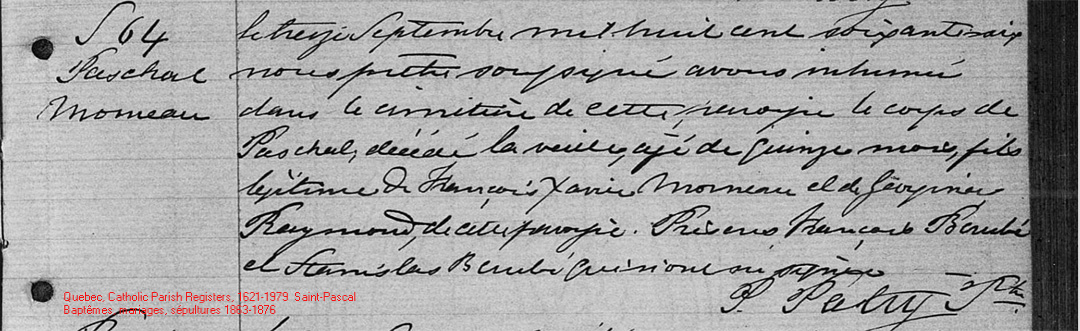 S 64
Paschal
Morneau
le treize Septembre mil huit cent soixante-six
nous prêtre soussigné avons inhumé
dans le cimetière de cette paroisse le corps de
Paschal, décédé la veille, agé de quinze mois, fils
légitime de François Xavier Morneau et de Géorgina
Raymond, de cette paroisse. Présens François Bérubé
et Stanislas Bérubé qui n'ont su signer
P. Patry Ptre.
Quebec, Catholic Parish Registers, 1621-1979 Saint-Pascal
Baptêmes, mariages, sépultures 1863-1876